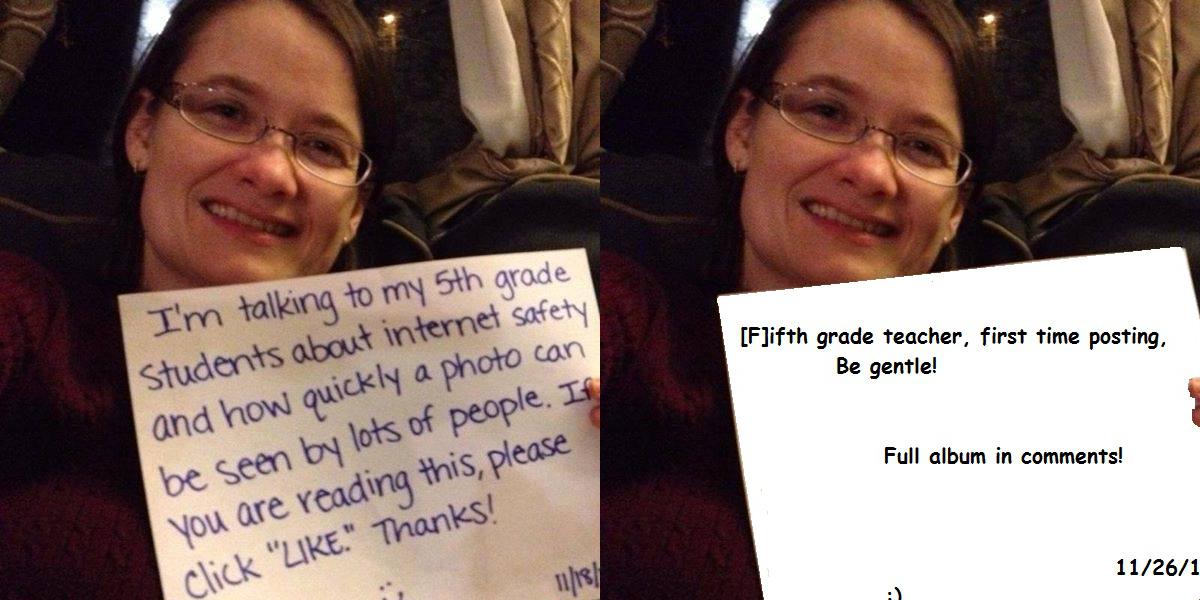 I'm talking to my 5th grade
students about internet safety
and how quickly a photo can
be seen by lots of people. If
you are reading this, please
click "LIKE." Thanks!
:)
11/18/
[F]ifth grade teacher, first time posting,
Be gentle!
Full album in comments!
11/26/1
:)